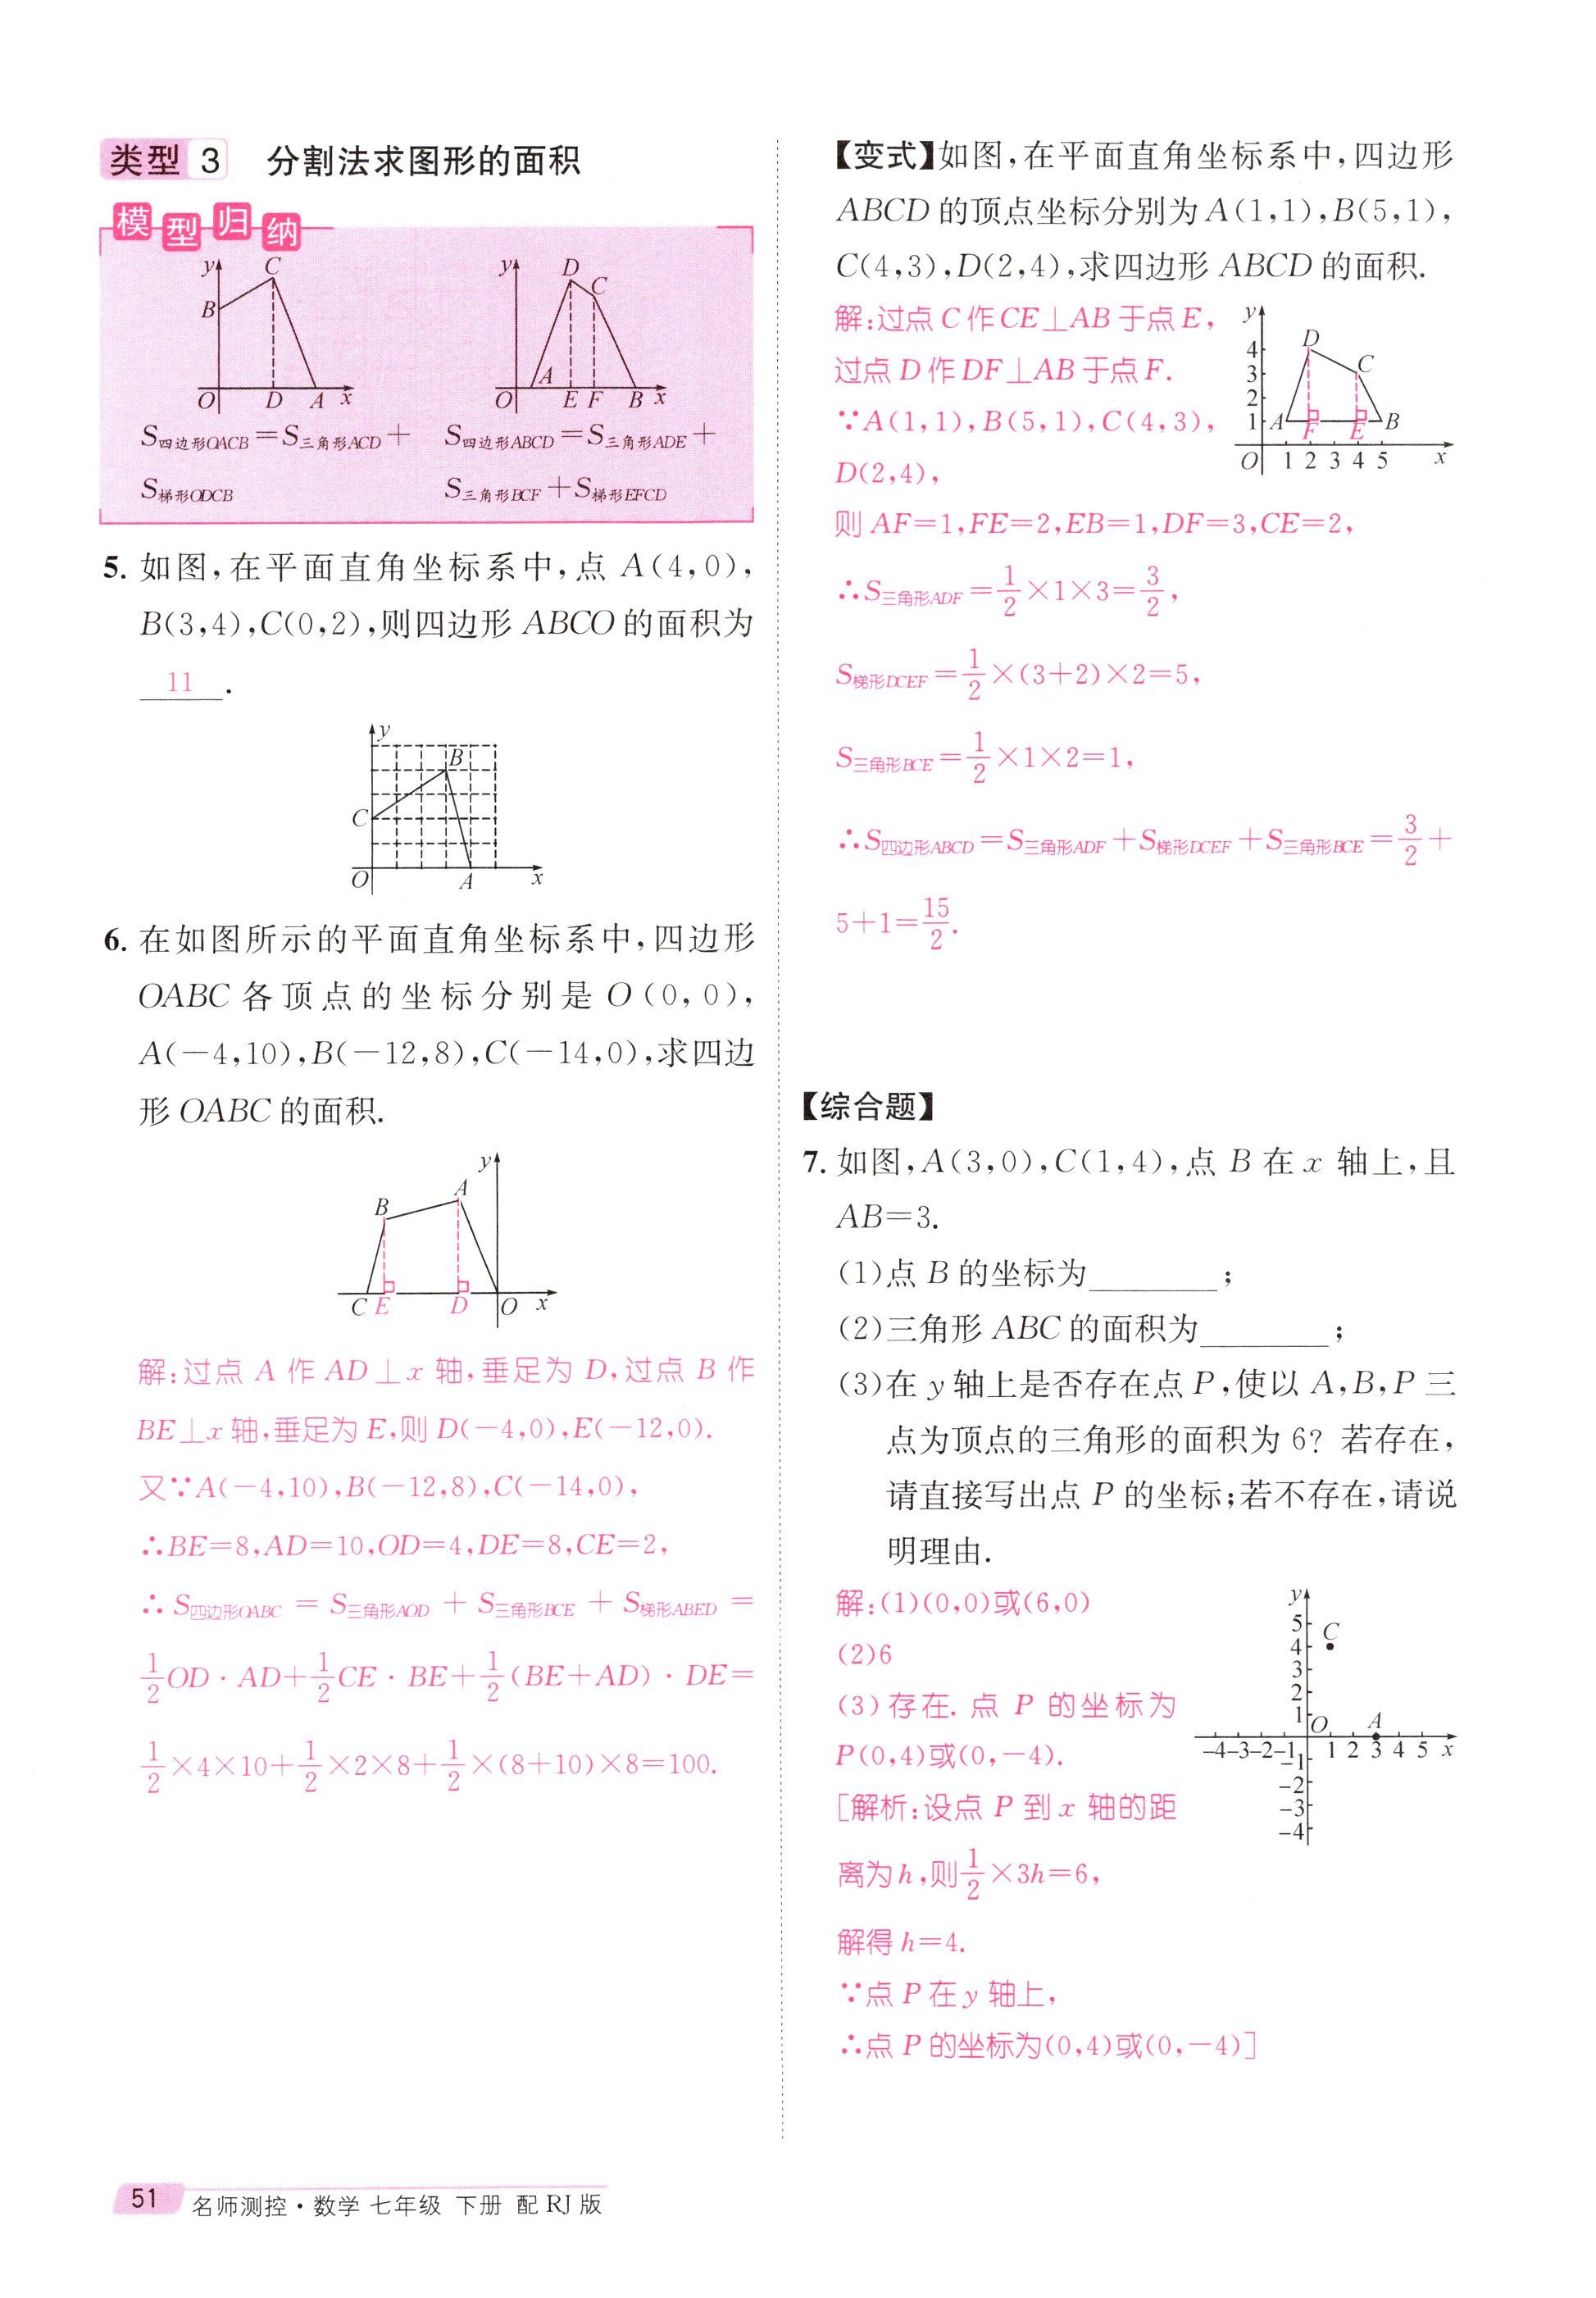 类型 3 分割法求图形的面积
模型归纳
y C B O D A x
y D C A O E F B x
S四边形OACB=S三角形ACD+
S梯形ODCB
S四边形ABCD=S三角形ADE+
S三角形BCF+S梯形EFCD
5. 如图,在平面直角坐标系中,点 A(4,0),
B(3,4),C(0,2),则四边形 ABCO 的面积为
11 .
y B C O A x
6. 在如图所示的平面直角坐标系中,四边形
OABC 各顶点的坐标分别是 O(0,0),
A(-4,10),B(-12,8),C(-14,0),求四边
形 OABC 的面积.
y A B C E D O x
解:过点 A 作 AD⊥x 轴,垂足为 D,过点 B 作
BE⊥x 轴,垂足为 E,则 D(-4,0),E(-12,0).
又∵A(-4,10),B(-12,8),C(-14,0),
∴BE=8,AD=10,OD=4,DE=8,CE=2,
∴S四边形OABC=S三角形AOD+S三角形BCE+S梯形ABED=
1/2 OD·AD+1/2 CE·BE+1/2(BE+AD)·DE=
1/2×4×10+1/2×2×8+1/2×(8+10)×8=100.
【变式】如图,在平面直角坐标系中,四边形
ABCD 的顶点坐标分别为 A(1,1),B(5,1),
C(4,3),D(2,4),求四边形 ABCD 的面积.
解:过点 C 作 CE⊥AB 于点 E,
过点 D 作 DF⊥AB 于点 F.
∵A(1,1),B(5,1),C(4,3),
D(2,4),
y 4 3 2 1 D C A F E B O 1 2 3 4 5 x
则 AF=1,FE=2,EB=1,DF=3,CE=2,
∴S三角形ADF=1/2×1×3=3/2,
S梯形DCEF=1/2×(3+2)×2=5,
S三角形BCE=1/2×1×2=1,
∴S四边形ABCD=S三角形ADF+S梯形DCEF+S三角形BCE=3/2+
5+1=15/2.
【综合题】
7. 如图,A(3,0),C(1,4),点 B 在 x 轴上,且
AB=3.
(1)点 B 的坐标为________;
(2)三角形 ABC 的面积为________;
(3)在 y 轴上是否存在点 P,使以 A,B,P 三
点为顶点的三角形的面积为 6? 若存在,
请直接写出点 P 的坐标;若不存在,请说
明理由.
解:(1)(0,0)或(6,0)
(2)6
(3)存在. 点 P 的坐标为
P(0,4)或(0,-4).
[解析:设点 P 到 x 轴的距
离为 h,则1/2×3h=6,
解得 h=4.
∵点 P 在 y 轴上,
∴点 P 的坐标为(0,4)或(0,-4)]
y 5 4 3 2 1 C O A
-4-3-2-1 1 2 3 4 5 x
-1 -2 -3 -4
51 名师测控·数学 七年级 下册 配 RJ 版